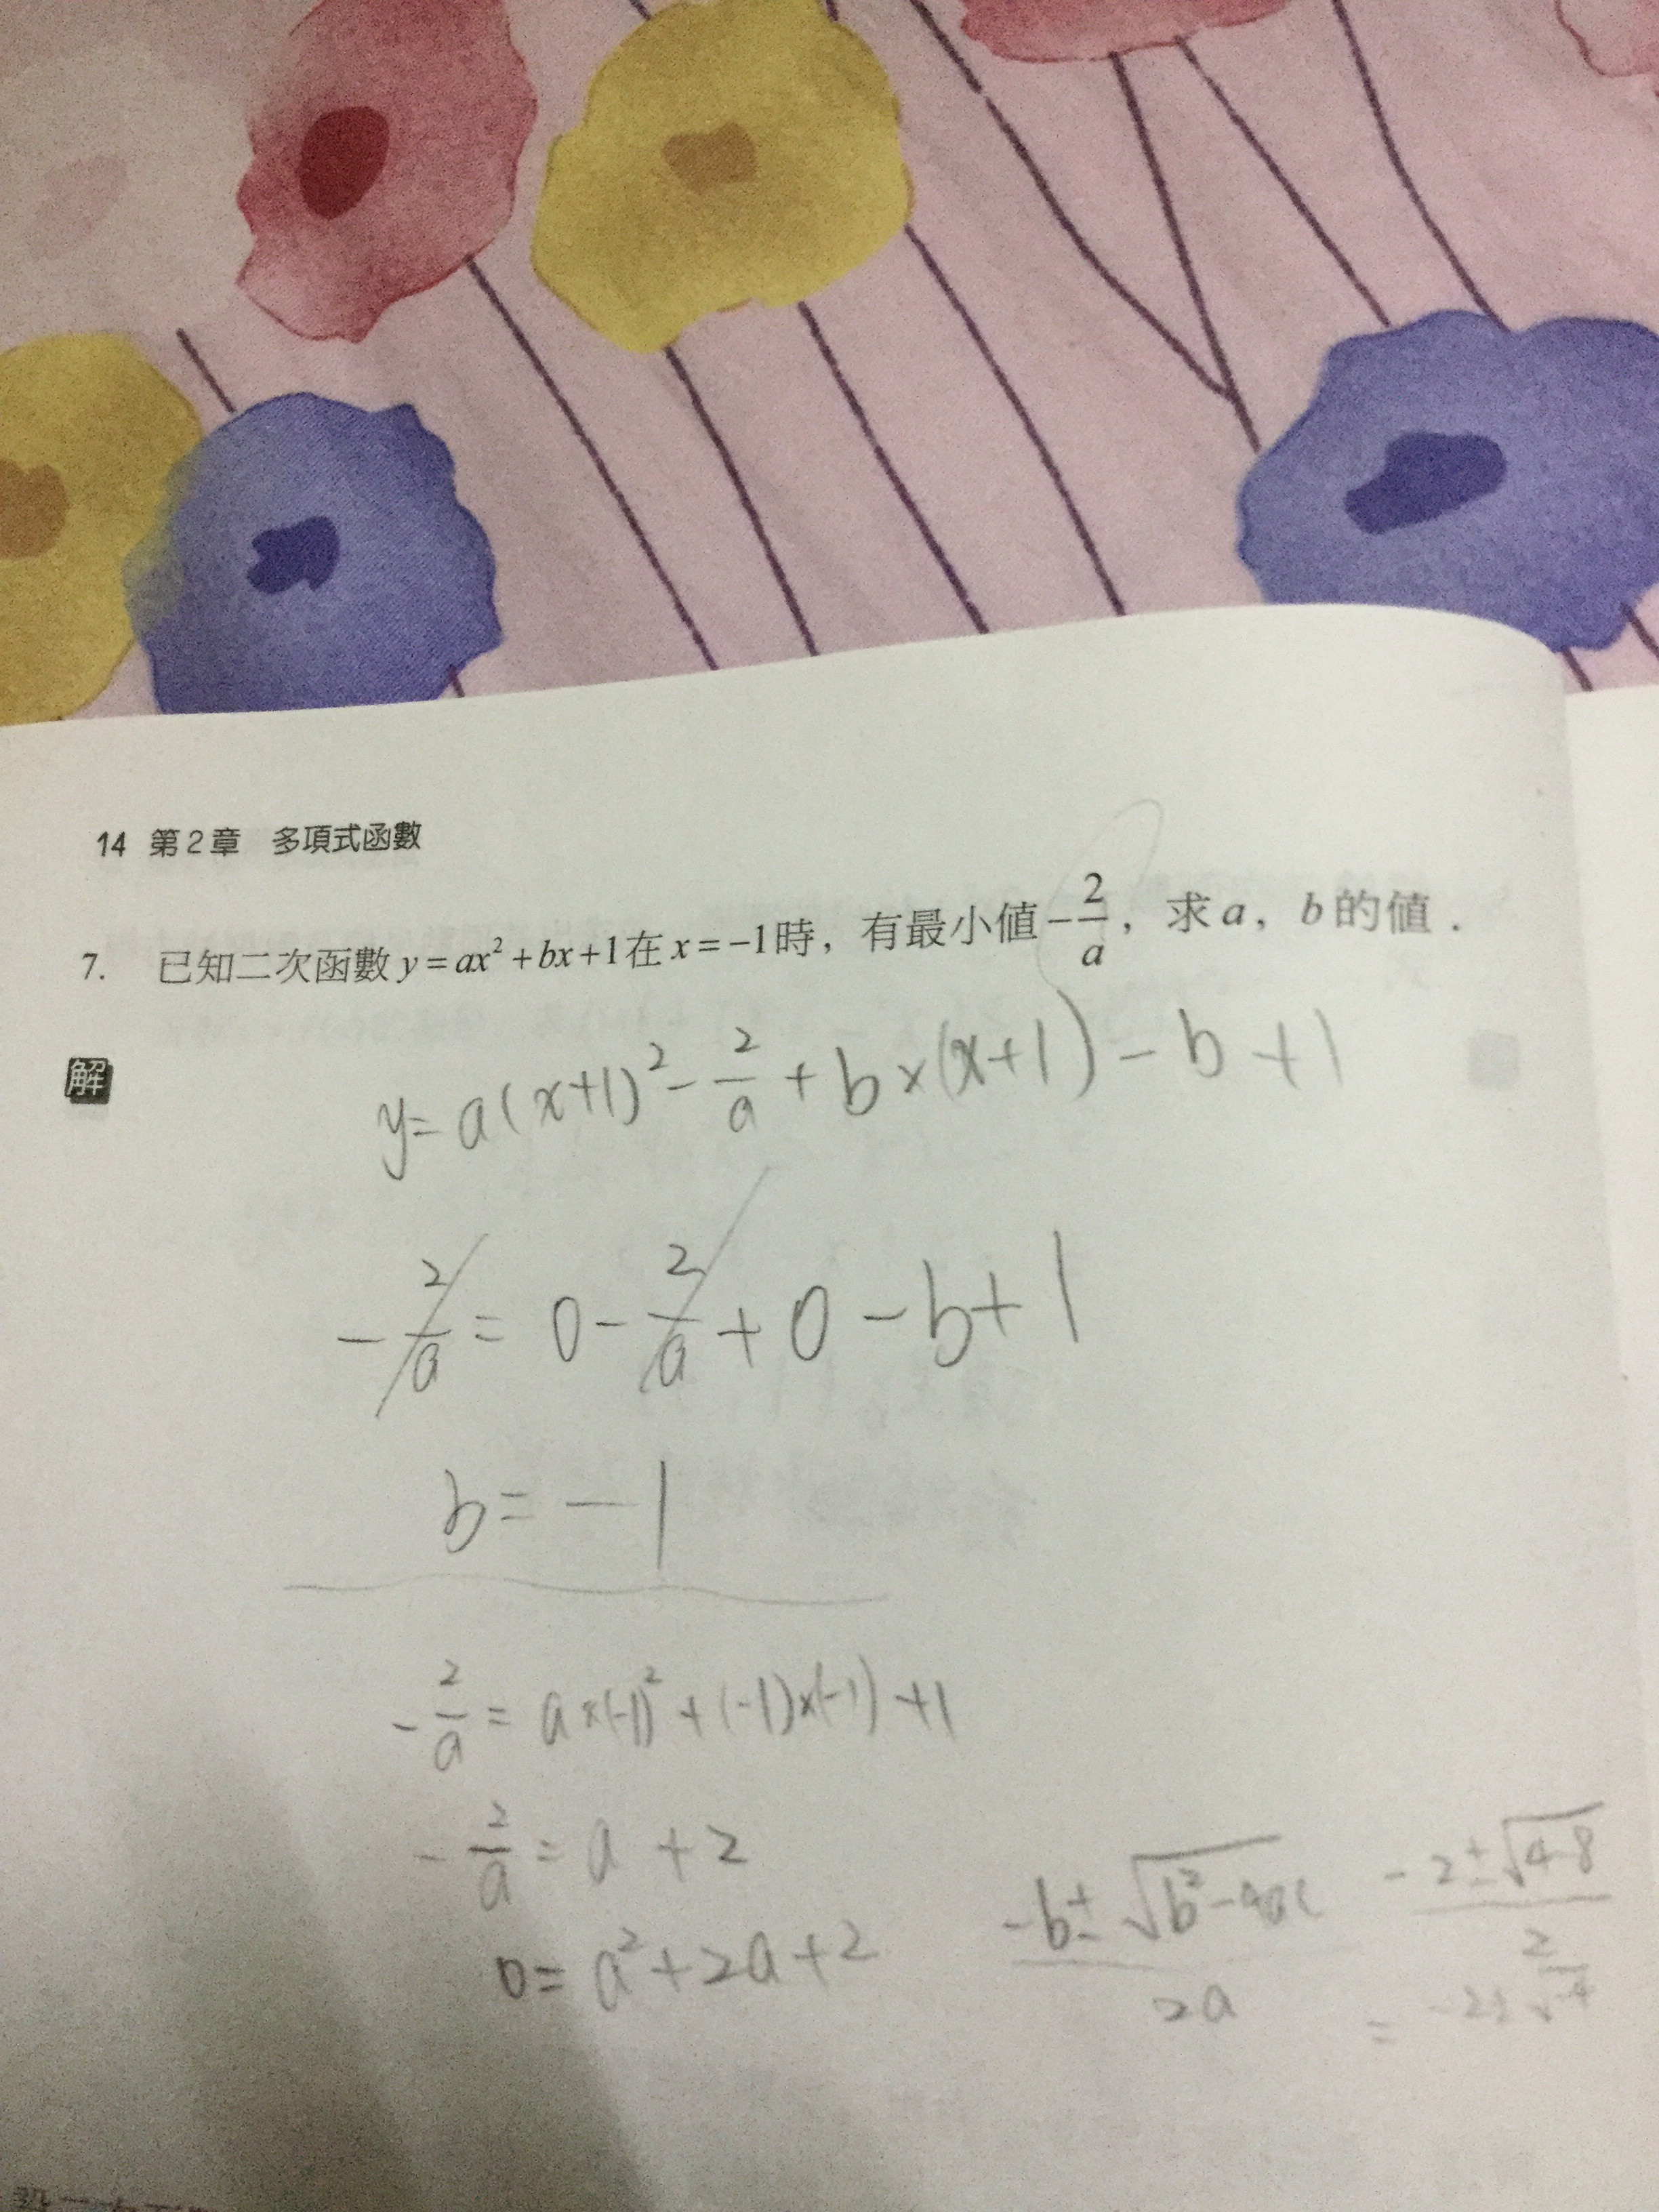 14 第2章 多項式函數
7. 已知二次函數 y=ax²+bx+1在 x=-1時，有最小值-2/a，求 a，b的值．
解
y=a(x+1)²-2/a+b×(x+1)-b+1
-2/a=0-2/a+0-b+1
b=-1
-2/a=a×(-1)²+(-1)×(-1)+1
-2/a=a+2
0=a²+2a+2
-b±√b²-4ac/2a
-2±√4-8/2